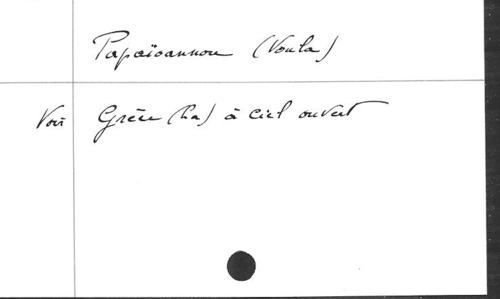 Papaïoannou (Voula)
Voir Grèce (La) à ciel ouvert